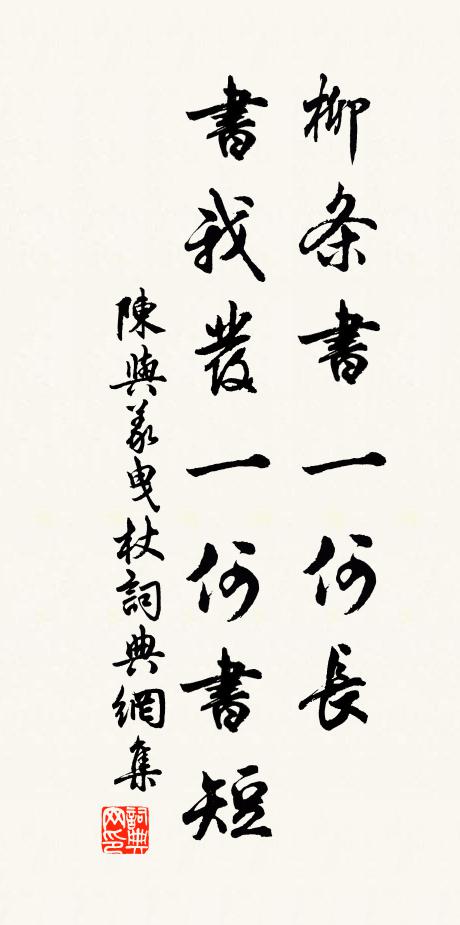 柳条書一何長
書我發一何書短
陳與義曳杖詞典網集
詞典
网印